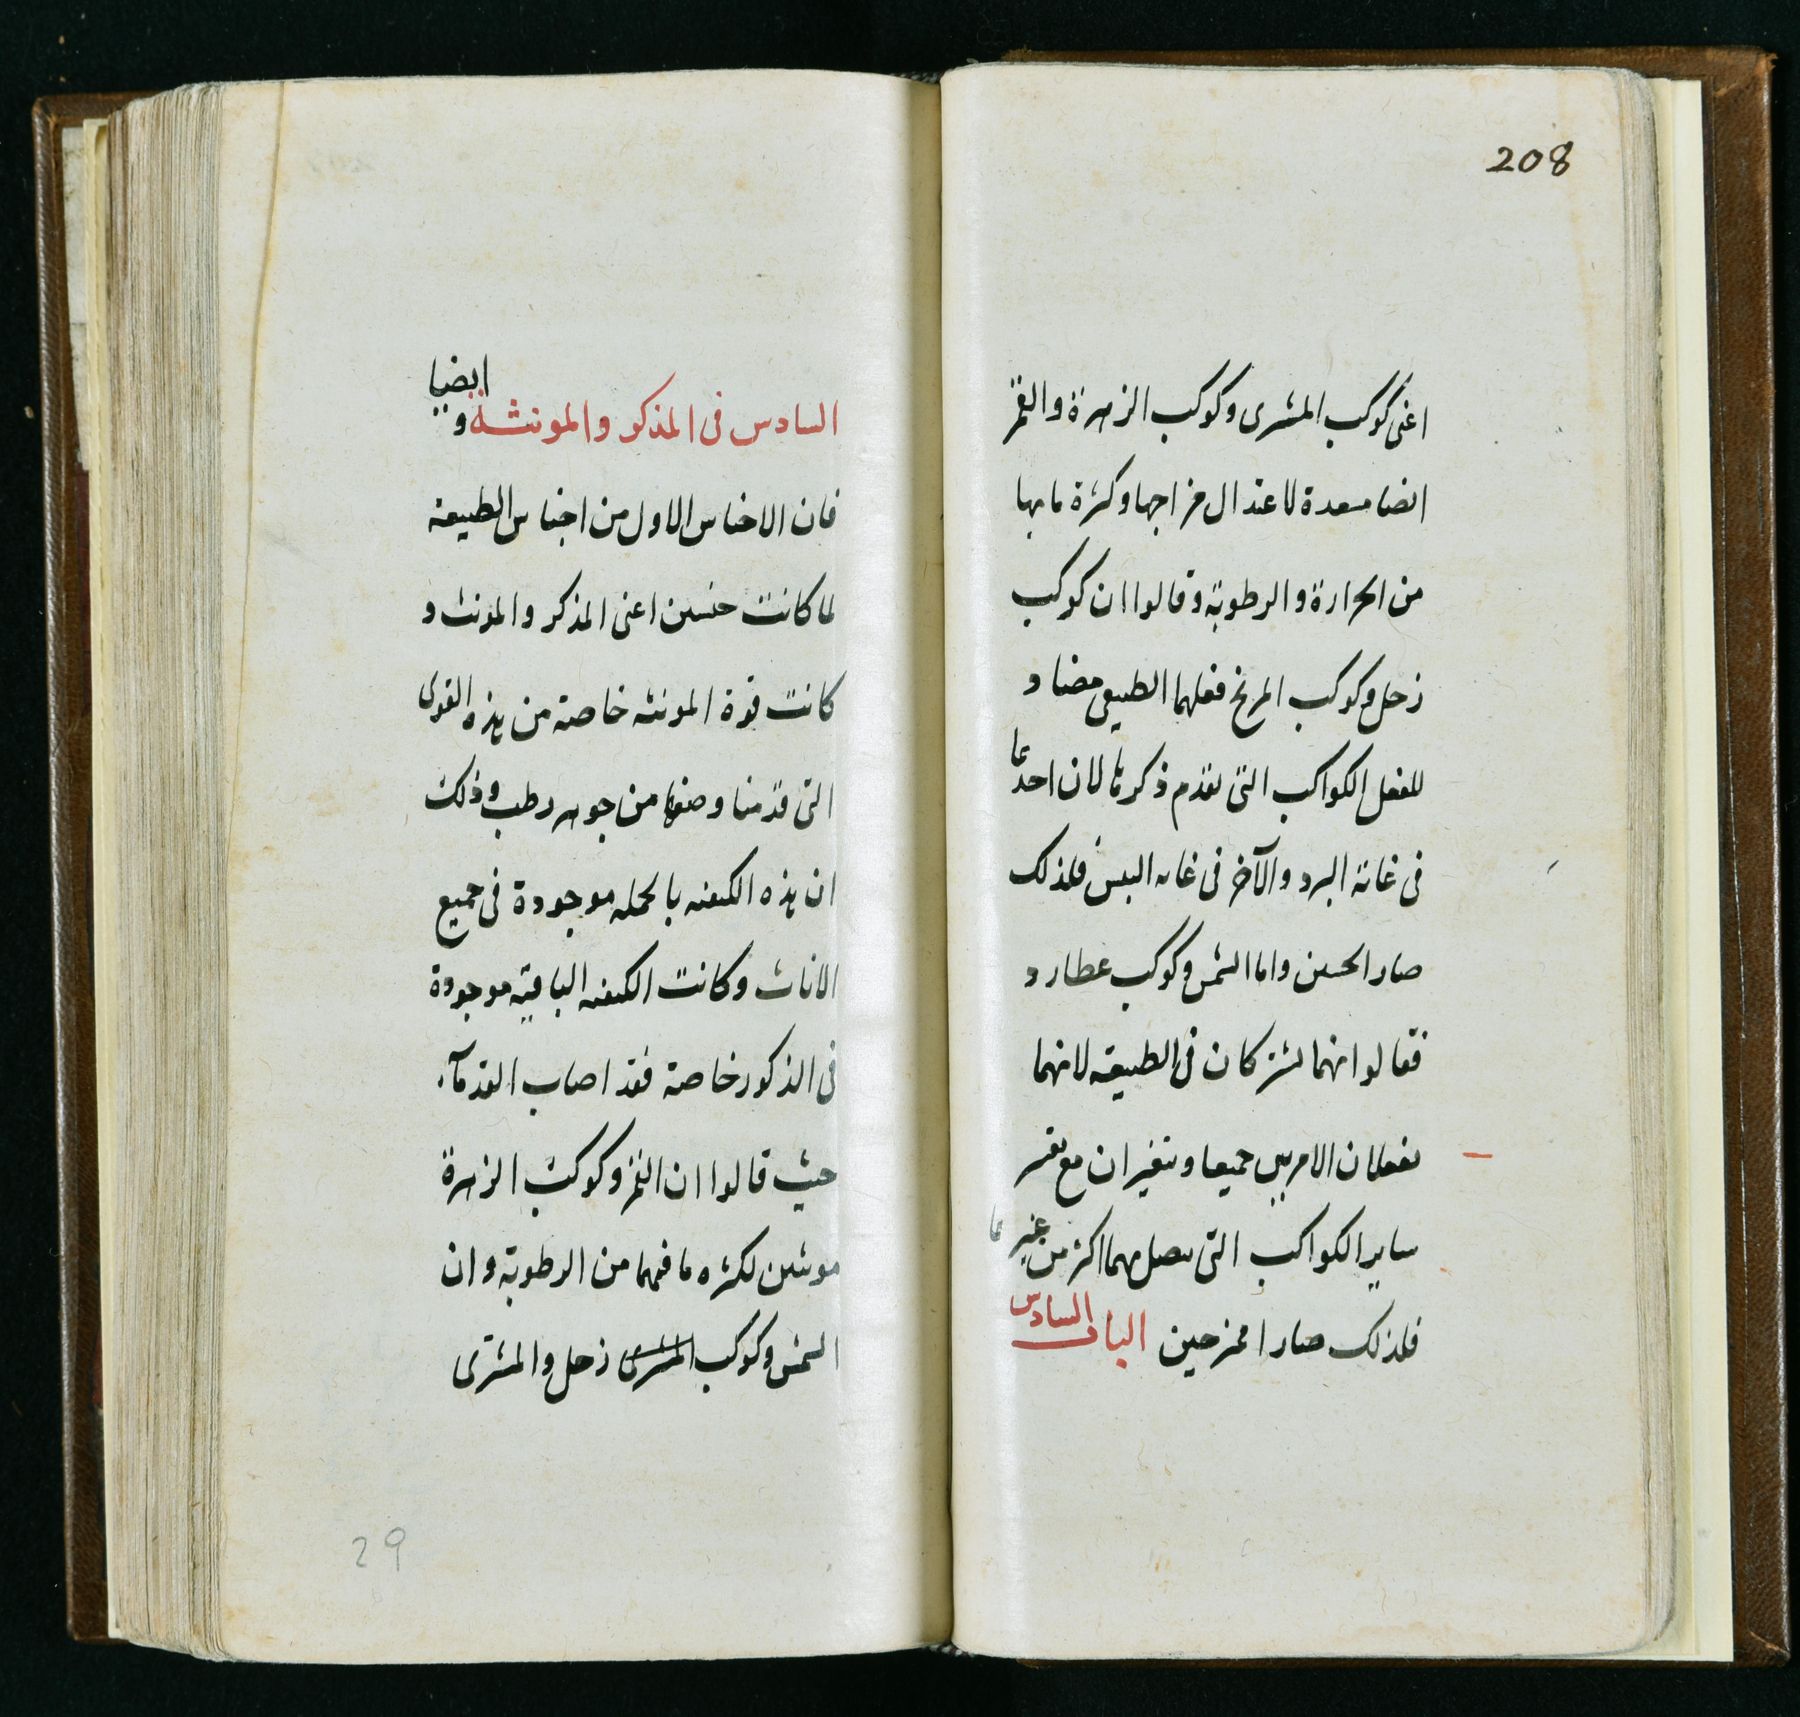 208
اعنى كوكب المشترى وكوكب الزهرة والقمر
ايضا مسعدة لاعتدال مزاجها وكثرة ما بها
من الحرارة والرطوبة وقالوا ان كوكب
زحل وكوكب المريخ فعلهما الطبيعى مضاد
للفعل الكواكب التى تقدم ذكرها لان احدهما
فى غاية البرد والآخر فى غاية اليبس فلذلك
صار الحسين واما الشمس وكوكب عطارد
فقالوا انهما يشتركان فى الطبيعة لانهما
يفعلان الامرين جميعا ويتغيران مع تغير
ساير الكواكب التى يتصل بهما اكثر من غيرهما
فلذلك صارا ممزجين الباب السادس
السادس فى المذكر والمونثة وايضا
فان الاجناس الاول من اجناس الطبيعة
لما كانت جنسين اعنى المذكر والمونث و
كانت قوة المونثه خاصة من هذه القوى
التى قدمنا وصفها من جوهر رطب وذلك
ان هذه الكيفيه بالجمله موجودة فى جميع
الاناث وكانت الكيفيه الباقية موجودة
فى الذكور خاصة فقد اصاب القدمآء
حيث قالوا ان القمر وكوكب الزهرة
مونثين لكثره ما فيهما من الرطوبة وان
الشمس وكوكب المشترى زحل والمشترى
29